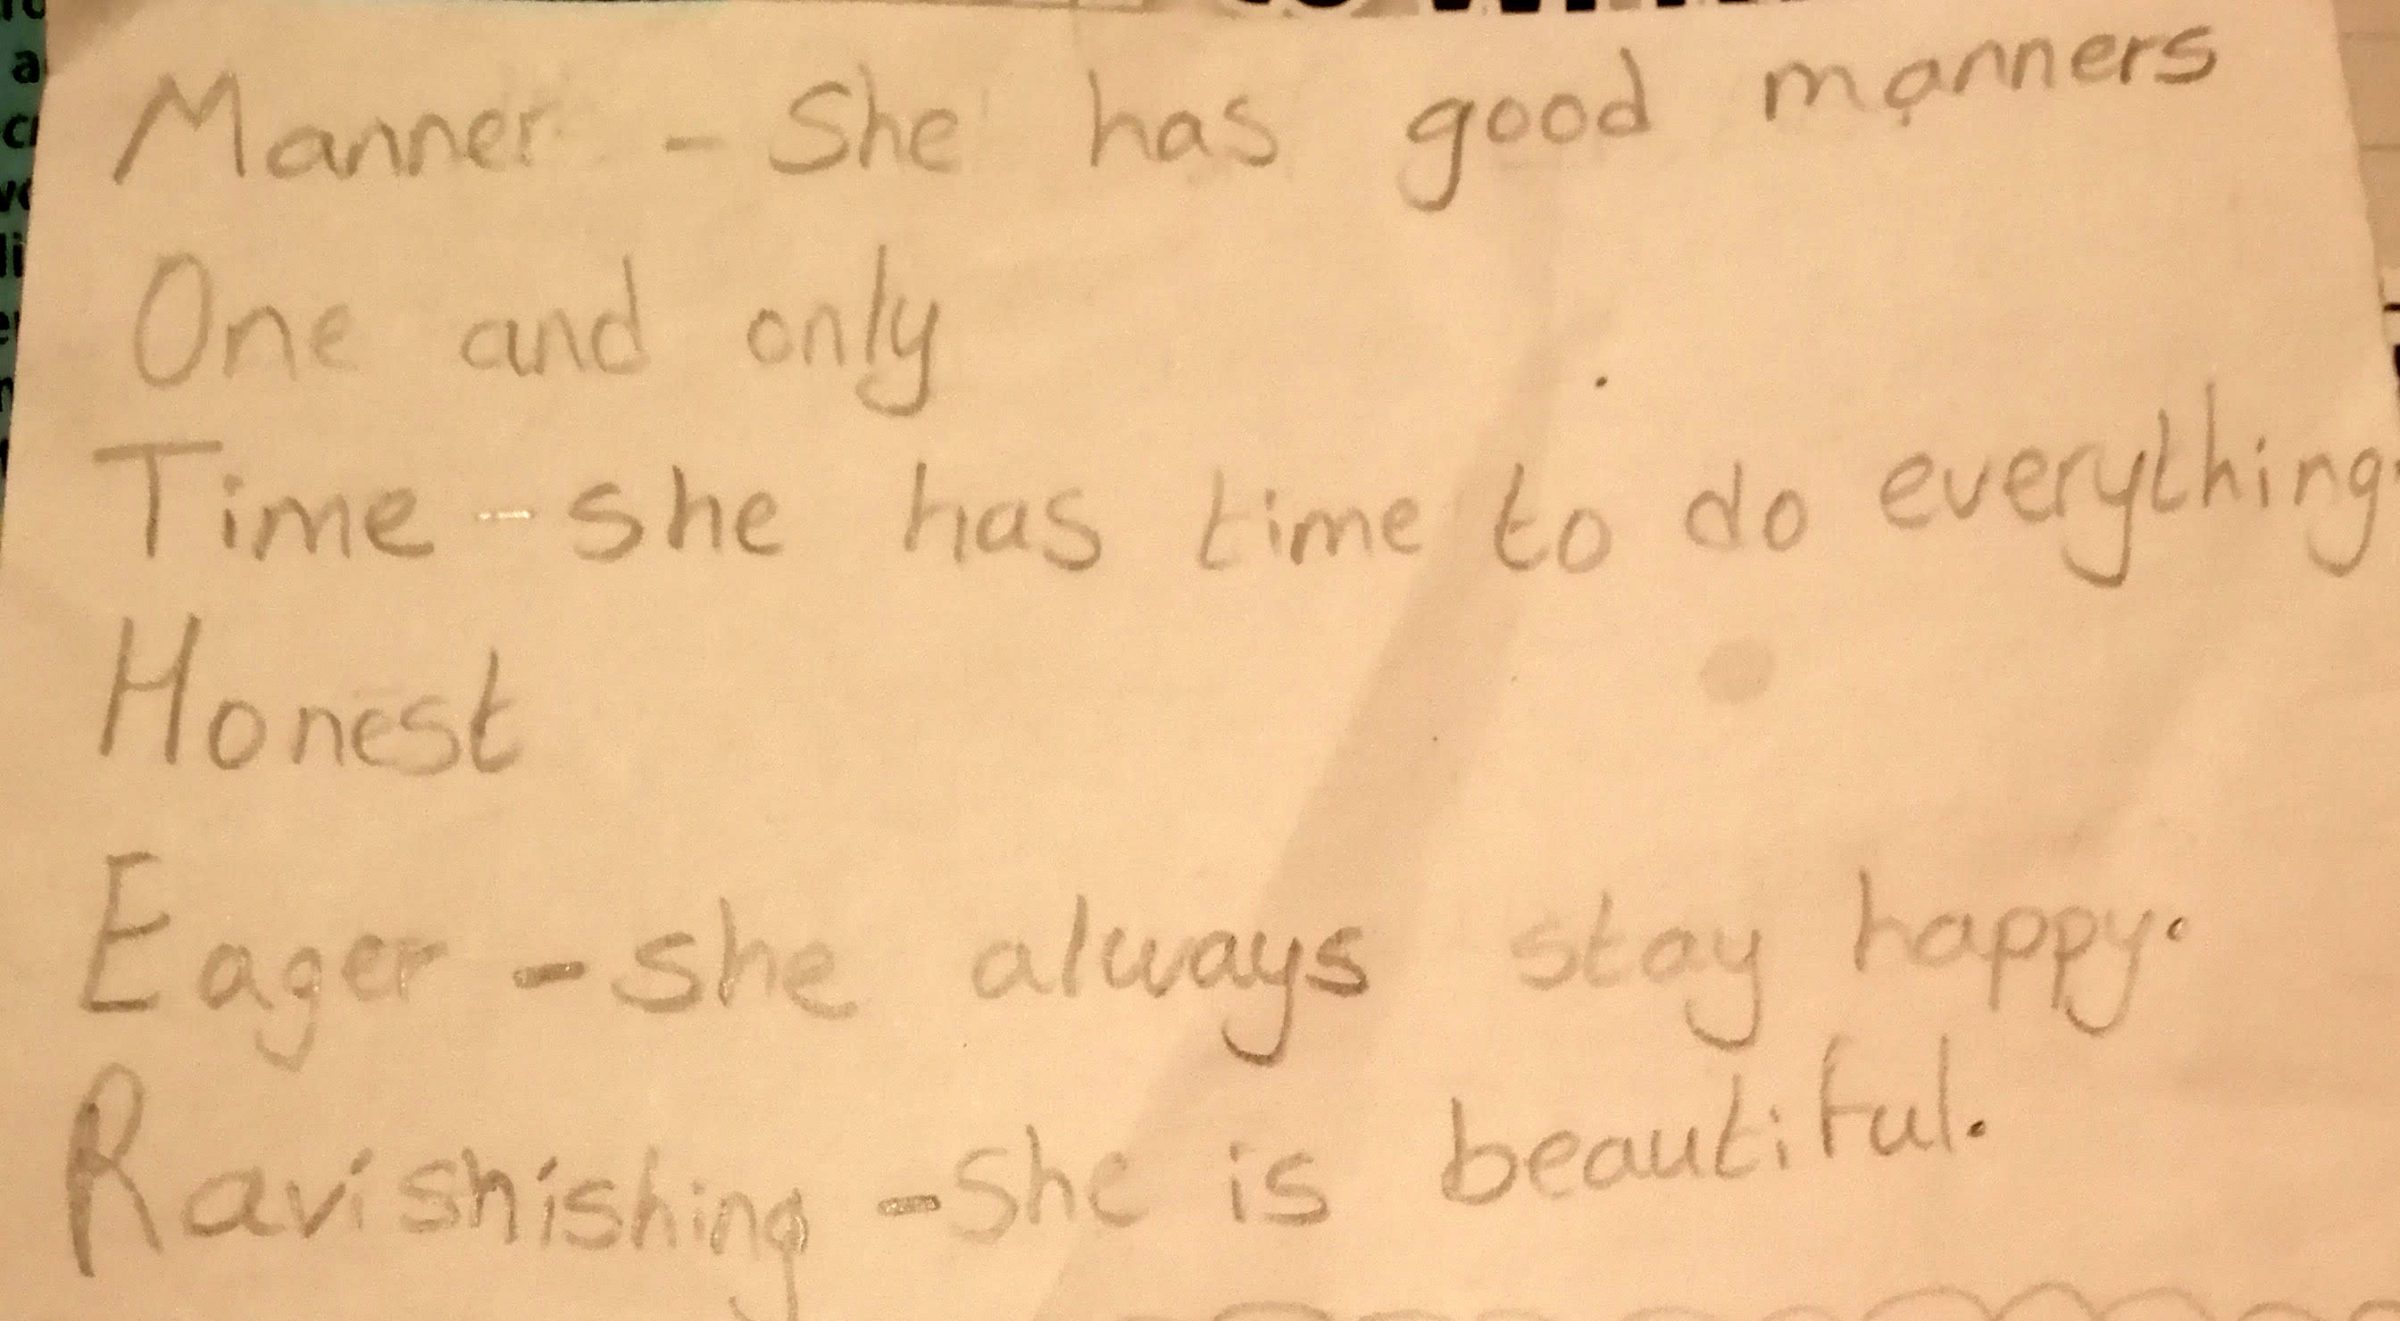 Manner - She has good manners
One and only
Time - she has time to do everything
Honest
Eager - she always stay happy.
Ravishishing - She is beautiful.